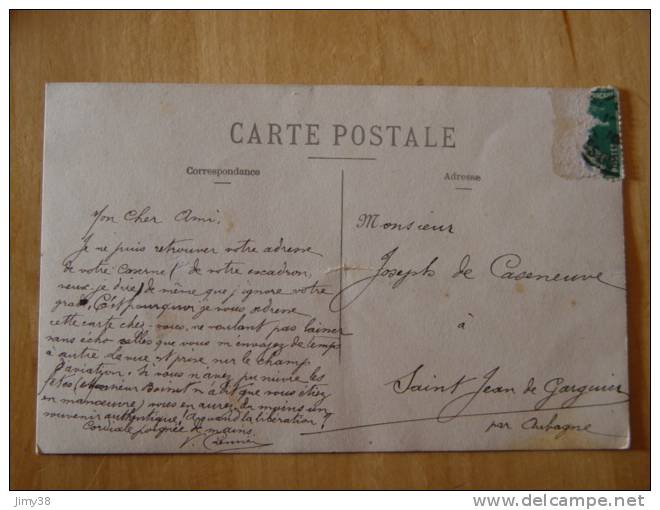 CARTE POSTALE
Correspondance
Adresse
Mon Cher Ami,
Je ne puis retrouver votre adresse
de votre Caserne (de votre escadron,
veux-je dire) de même que j'ignore votre
grade. C'est pourquoi je vous adresse
cette carte chez-vous, ne voulant pas laisser
sans écho celles que vous m'envoyez de temps
à autre. La vue est prise sur le champ
d'aviation. Si vous n'avez pu suivre les
fêtes (Monsieur m'a dit que vous étiez
en manœuvre) vous en aurez du moins un
souvenir authentique. A quand la libération?
Cordiale poignée de mains.
V.
Monsieur
Joseph de Caseneuve
à
Saint Jean de Garguier
par Aubagne
jimy38
delcampe.net